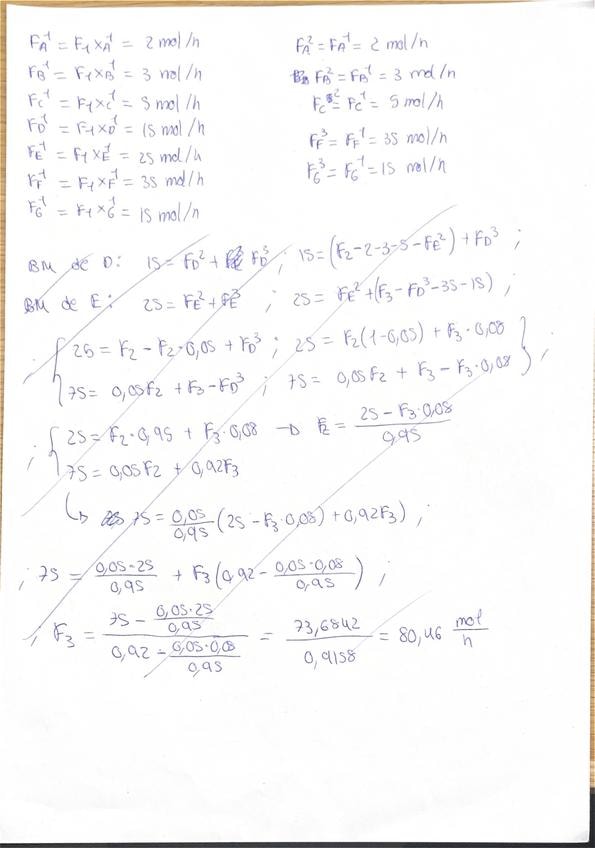 F_A^1 = F_1 x_A^1 = 2 mol/h
F_B^1 = F_1 x_B^1 = 3 mol/h
F_C^1 = F_1 x_C^1 = 5 mol/h
F_D^1 = F_1 x_D^1 = 15 mol/h
F_E^1 = F_1 x_E^1 = 25 mol/h
F_F^1 = F_1 x_F^1 = 35 mol/h
F_G^1 = F_1 x_G^1 = 15 mol/h
F_A^2 = F_A^1 = 2 mol/h
F_B^2 = F_B^1 = 3 mol/h
F_C^2 = F_C^1 = 5 mol/h
F_F^3 = F_F^1 = 35 mol/h
F_G^3 = F_G^1 = 15 mol/h
BM de D: 15 = F_D^2 + F_D^3 ; 15 = (F_2 - 2 - 3 - 5 - F_E^2) + F_D^3 ;
BM de E: 25 = F_E^2 + F_E^3 ; 25 = F_E^2 + (F_3 - F_D^3 - 35 - 15) ;
; { 25 = F_2 - F_2 · 0,05 + F_D^3 ; 25 = F_2 (1 - 0,05) + F_3 · 0,08
75 = 0,05 F_2 + F_3 - F_D^3 ; 75 = 0,05 F_2 + F_3 - F_3 · 0,08 } ;
; { 25 = F_2 · 0,95 + F_3 · 0,08 → F_2 = (25 - F_3 · 0,08) / 0,95
75 = 0,05 F_2 + 0,92 F_3
↳ 75 = 0,05/0,95 (25 - F_3 · 0,08) + 0,92 F_3) ;
; 75 = (0,05 · 25)/0,95 + F_3 (0,92 - (0,05 · 0,08)/0,95) ;
; F_3 = (75 - (0,05 · 25)/0,95) / (0,92 - (0,05 · 0,08)/0,95) = 73,6842 / 0,9158 = 80,46 mol/h